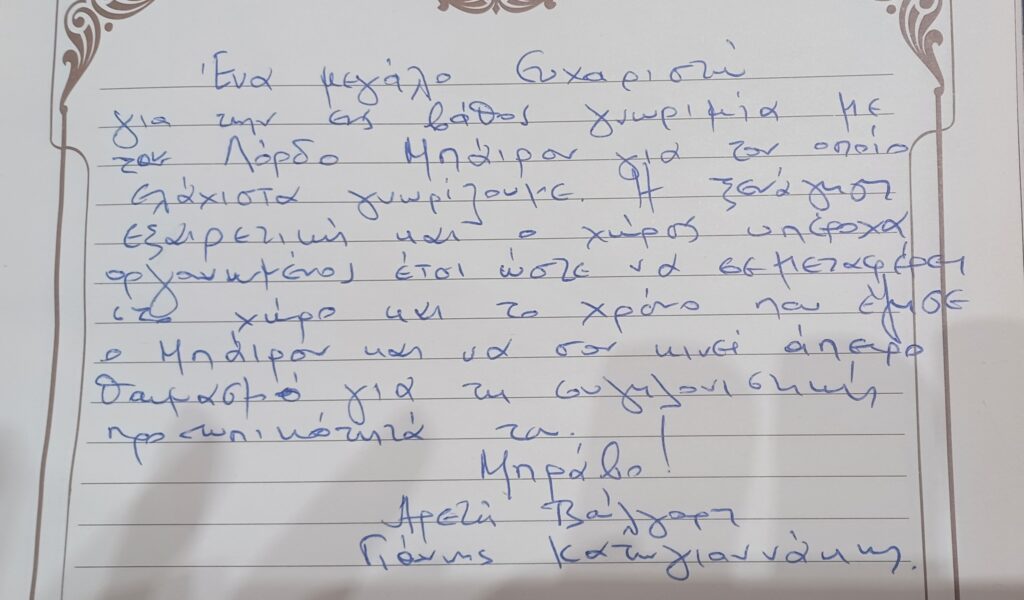 Ένα μεγάλο Ευχαριστώ
για την εις βάθος γνωριμία με
τον Λόρδο Μπάιρον για τον οποίο
ελάχιστα γνωρίζουμε. Η ξενάγηση
εξαιρετική και ο χώρος υπέροχα
οργανωμένος έτσι ώστε να σε μεταφέρει
στο χώρο και το χρόνο που έζησε
ο Μπάιρον και να σου κινεί άπειρο
θαυμασμό για τη συγκλονιστική
προσωπικότητά του.
Μπράβο!
Αρετή
Γιάννης Κατωγιαννάκης.